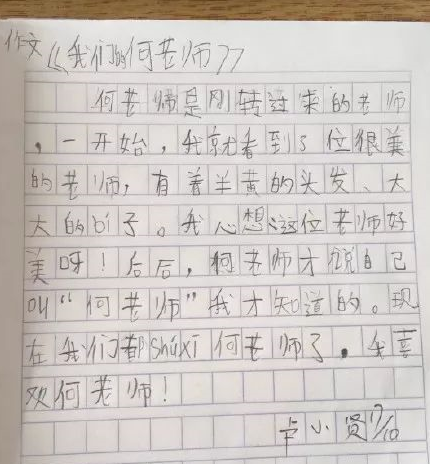 作文《我们的何老师》
何老师是刚转过来的老师
，一开始，我就看到了位很美
的老师，有着半黄的头发、大
大的bí子。我心想：这位老师好
美呀！后后，何老师才说自己
叫“何老师”我才知道的。现
在我们都shúxī何老师了，我喜
欢何老师！
卢小贤 7/10